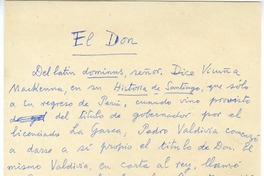 El Don
Del latín dominus, señor. Dice Vicuña
Mackenna, en su Historia de Santiago, que sólo
a su regreso de Perú, cuando vino provisto
del título de gobernador por el
licenciado La Gasca, Pedro Valdivia comenzó
a darse a sí propio el título de Don. El
mismo Valdivia, en carta al rey, llamó